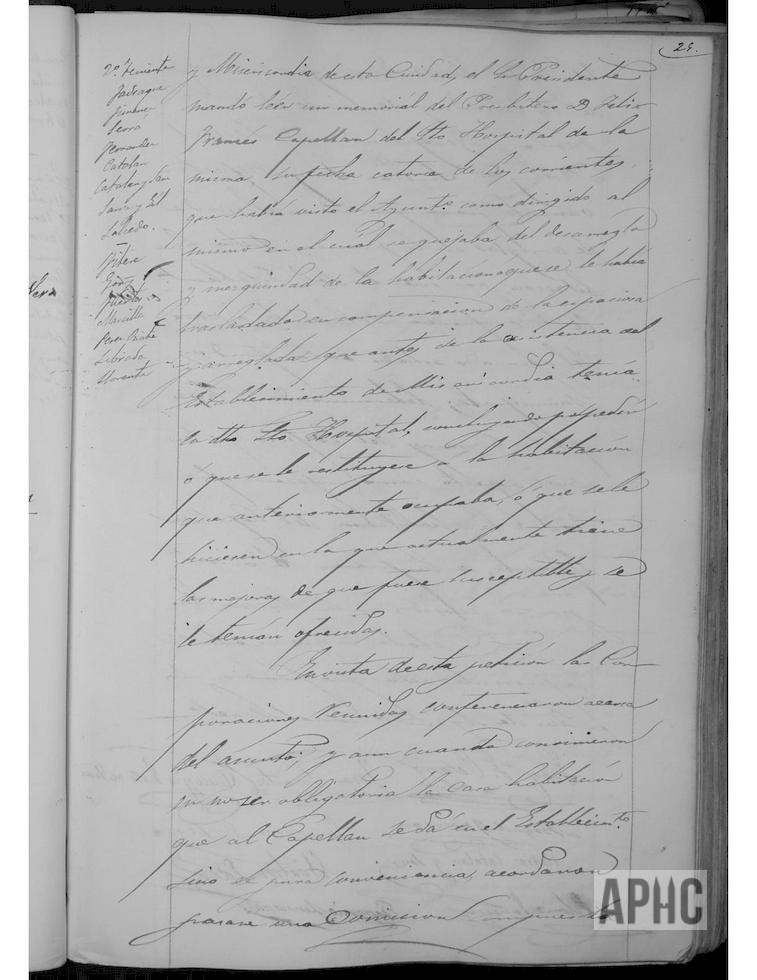 25.
2º Teniente
Jadraque
Jimenez
Serrá
Fernandez
Catalan
Catalan y San
Sanz y Gil
Salcedo.
Ribere
Marcilla
Librado
Llorente
y Misericordia de esta Ciudad, el Sr Presidente
mandó leer un memorial del Presbitero D. Felix
Francés Capellan del Sto Hospital de la
misma, su fecha catorce de los corrientes,
que había visto el Ayunto. como dirigido al
mismo en el cual se quejaba del desarreglo
y mezquindad de la habitacion aque se le había
trasladado en compensacion de la espaciosa
y arreglada que antes de la existencia del
Establecimiento de Misericordia tenía
en dho Sto Hospital, concluyendo por pedir
ó que se le restituyese a la habitación
que anteriormente ocupaba, ó que se le
hiciesen en la que actualmente tiene
las mejoras de que fuese susceptible y se
le tenían ofrecidas.
En vista de esta petición las Cor-
poraciones reunidas conferenciaron acerca
del asunto; y aun cuando convinieron
en no ser obligatoria la casa habitación
que al Capellan se dá en el Establecimto.
sino de pura conveniencia, acordaron
pasase una Comision compuesta
APHC